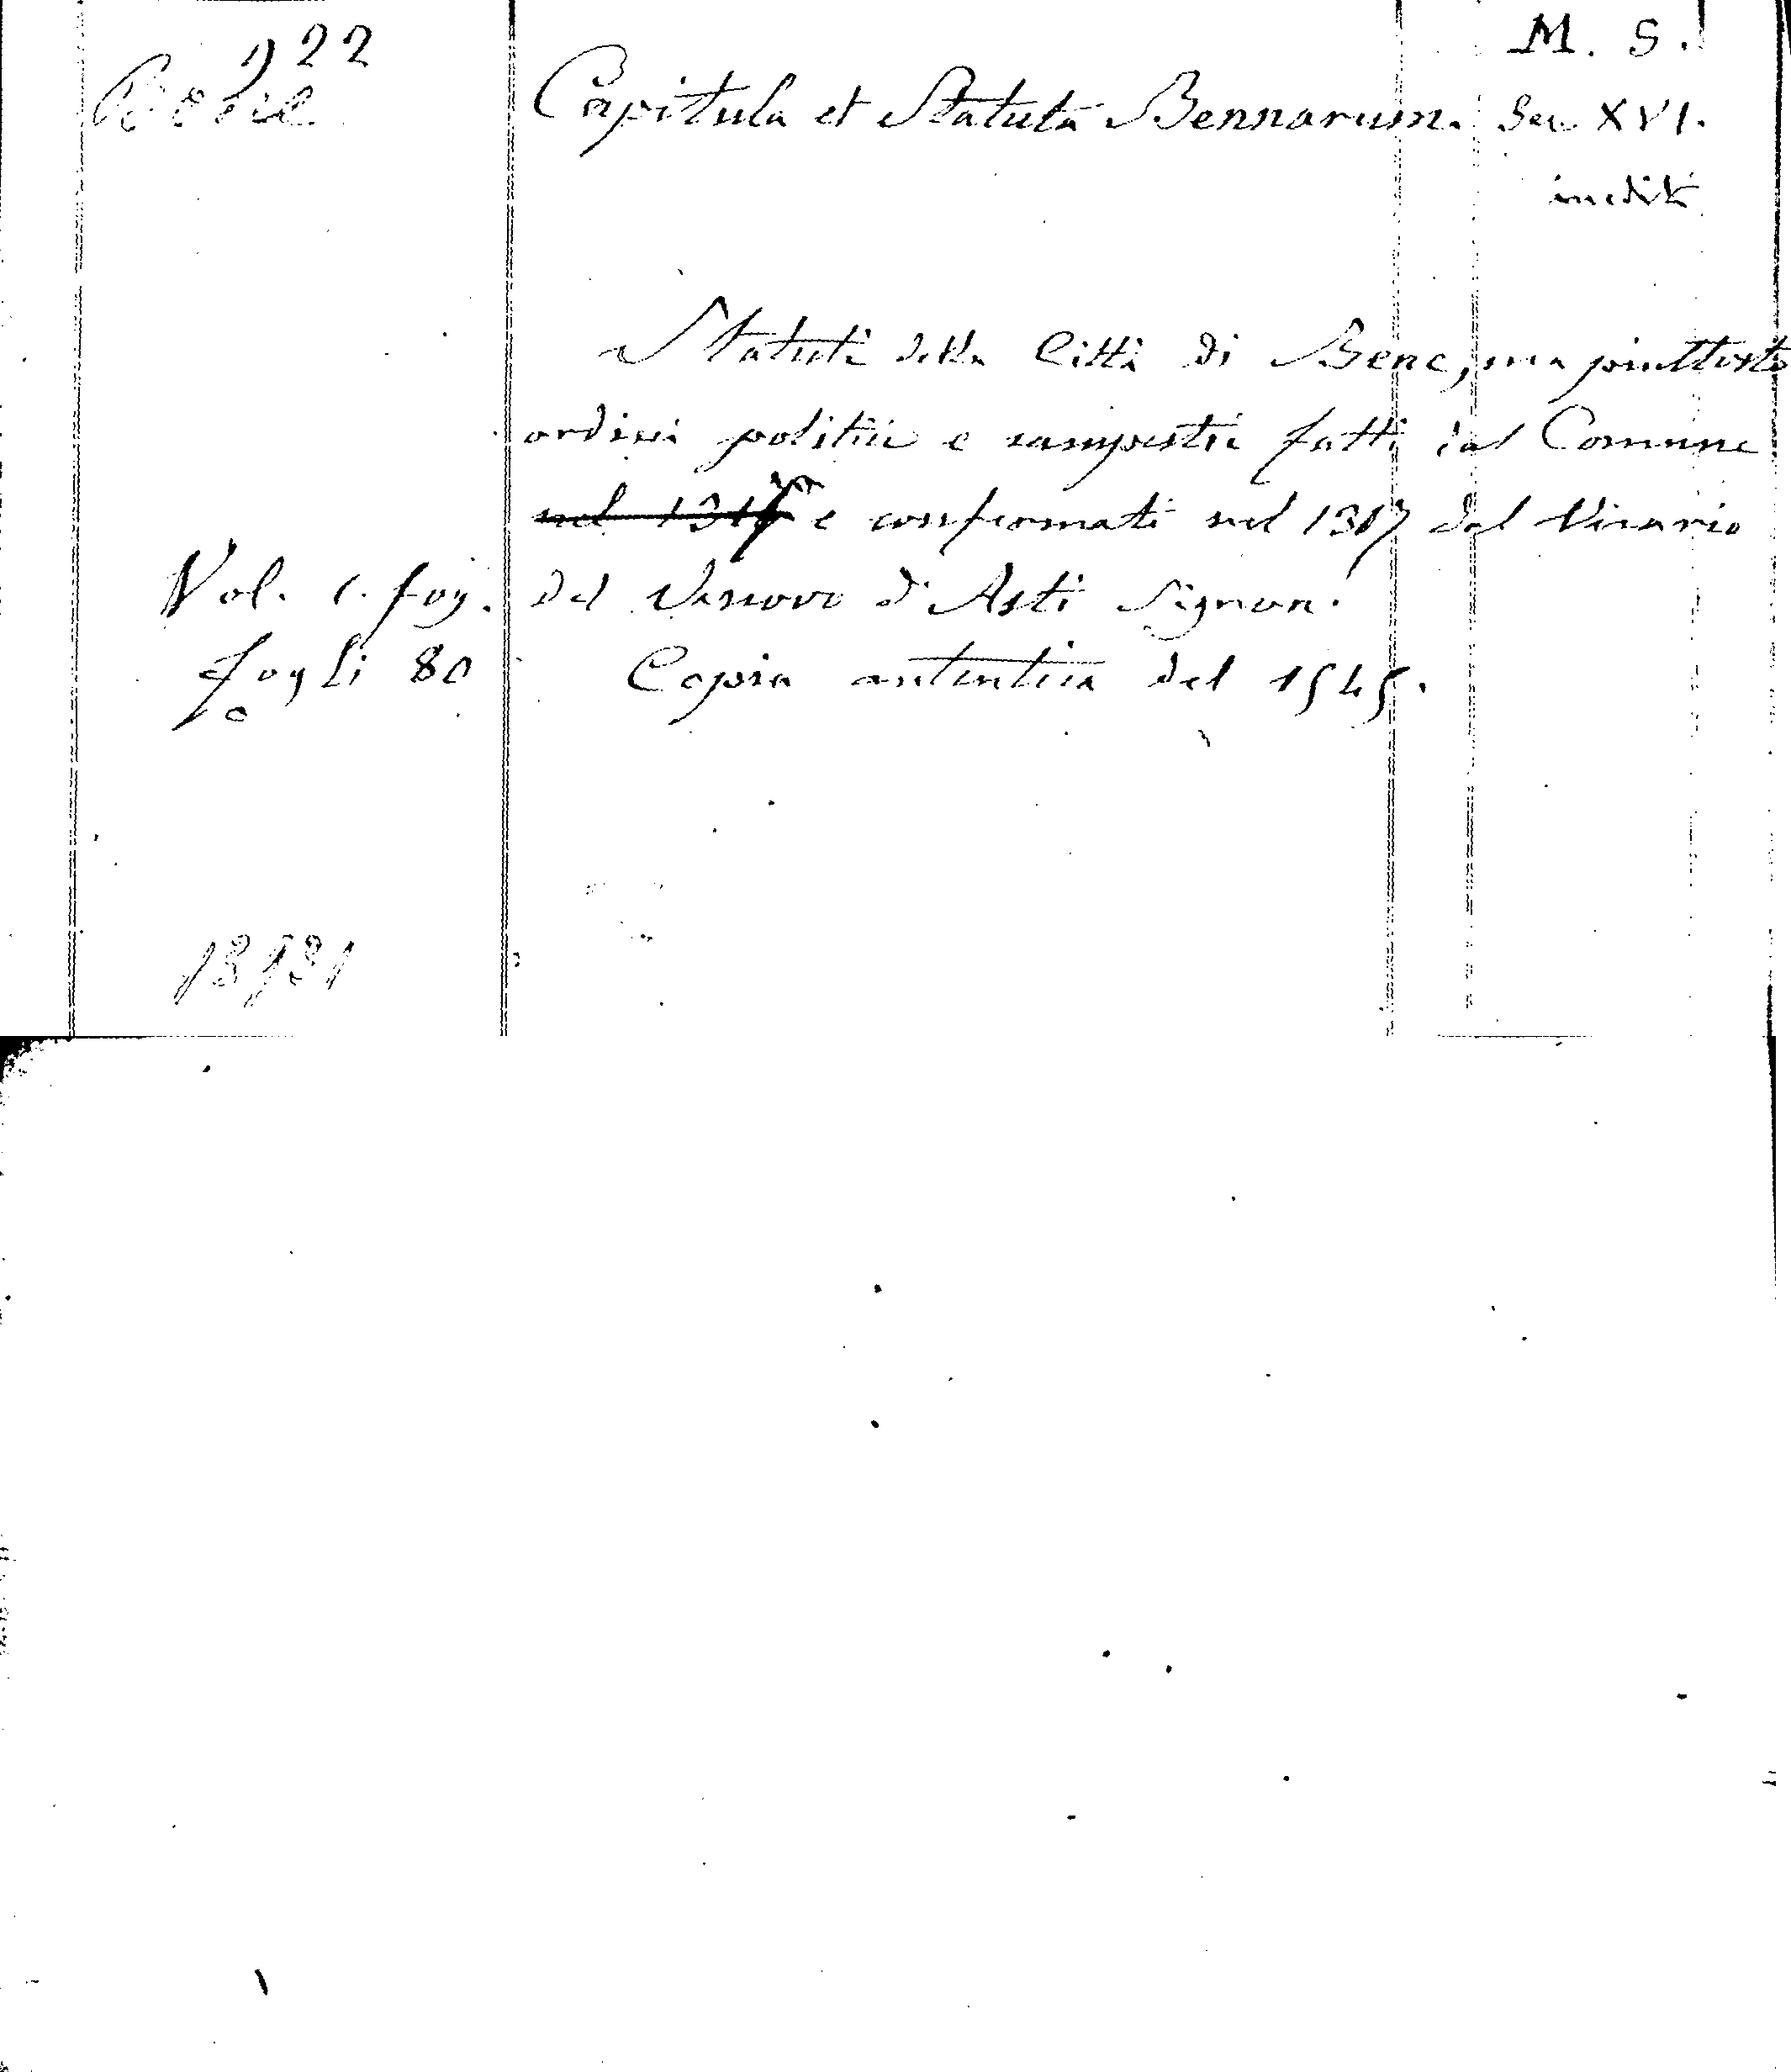 922
M. S.
Bene
Capitula et Statuta Bennarum.
Sec XVI.
inediti
Statuti della Città di Bene, ma piuttosto
ordini politici e campestri fatti dal Comune
nel e confermati nel 1317 dal Vicario
Vol. 1. fog. del Vescovo d'Asti Signore.
fogli 80 Copia autentica del 1545.
13931